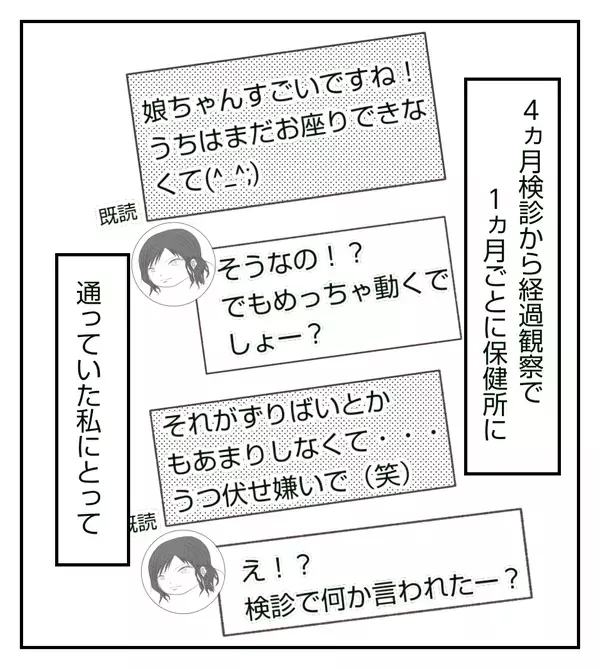 4ヵ月検診から経過観察で
1ヵ月ごとに保健所に
娘ちゃんすごいですね！
うちはまだお座りできな
くて(^_^;)
既読
そうなの！？
でもめっちゃ動くで
しょー？
それがずりばいとか
もあまりしなくて・・・
うつ伏せ嫌いで（笑）
既読
え！？
検診で何か言われたー？
通っていた私にとって